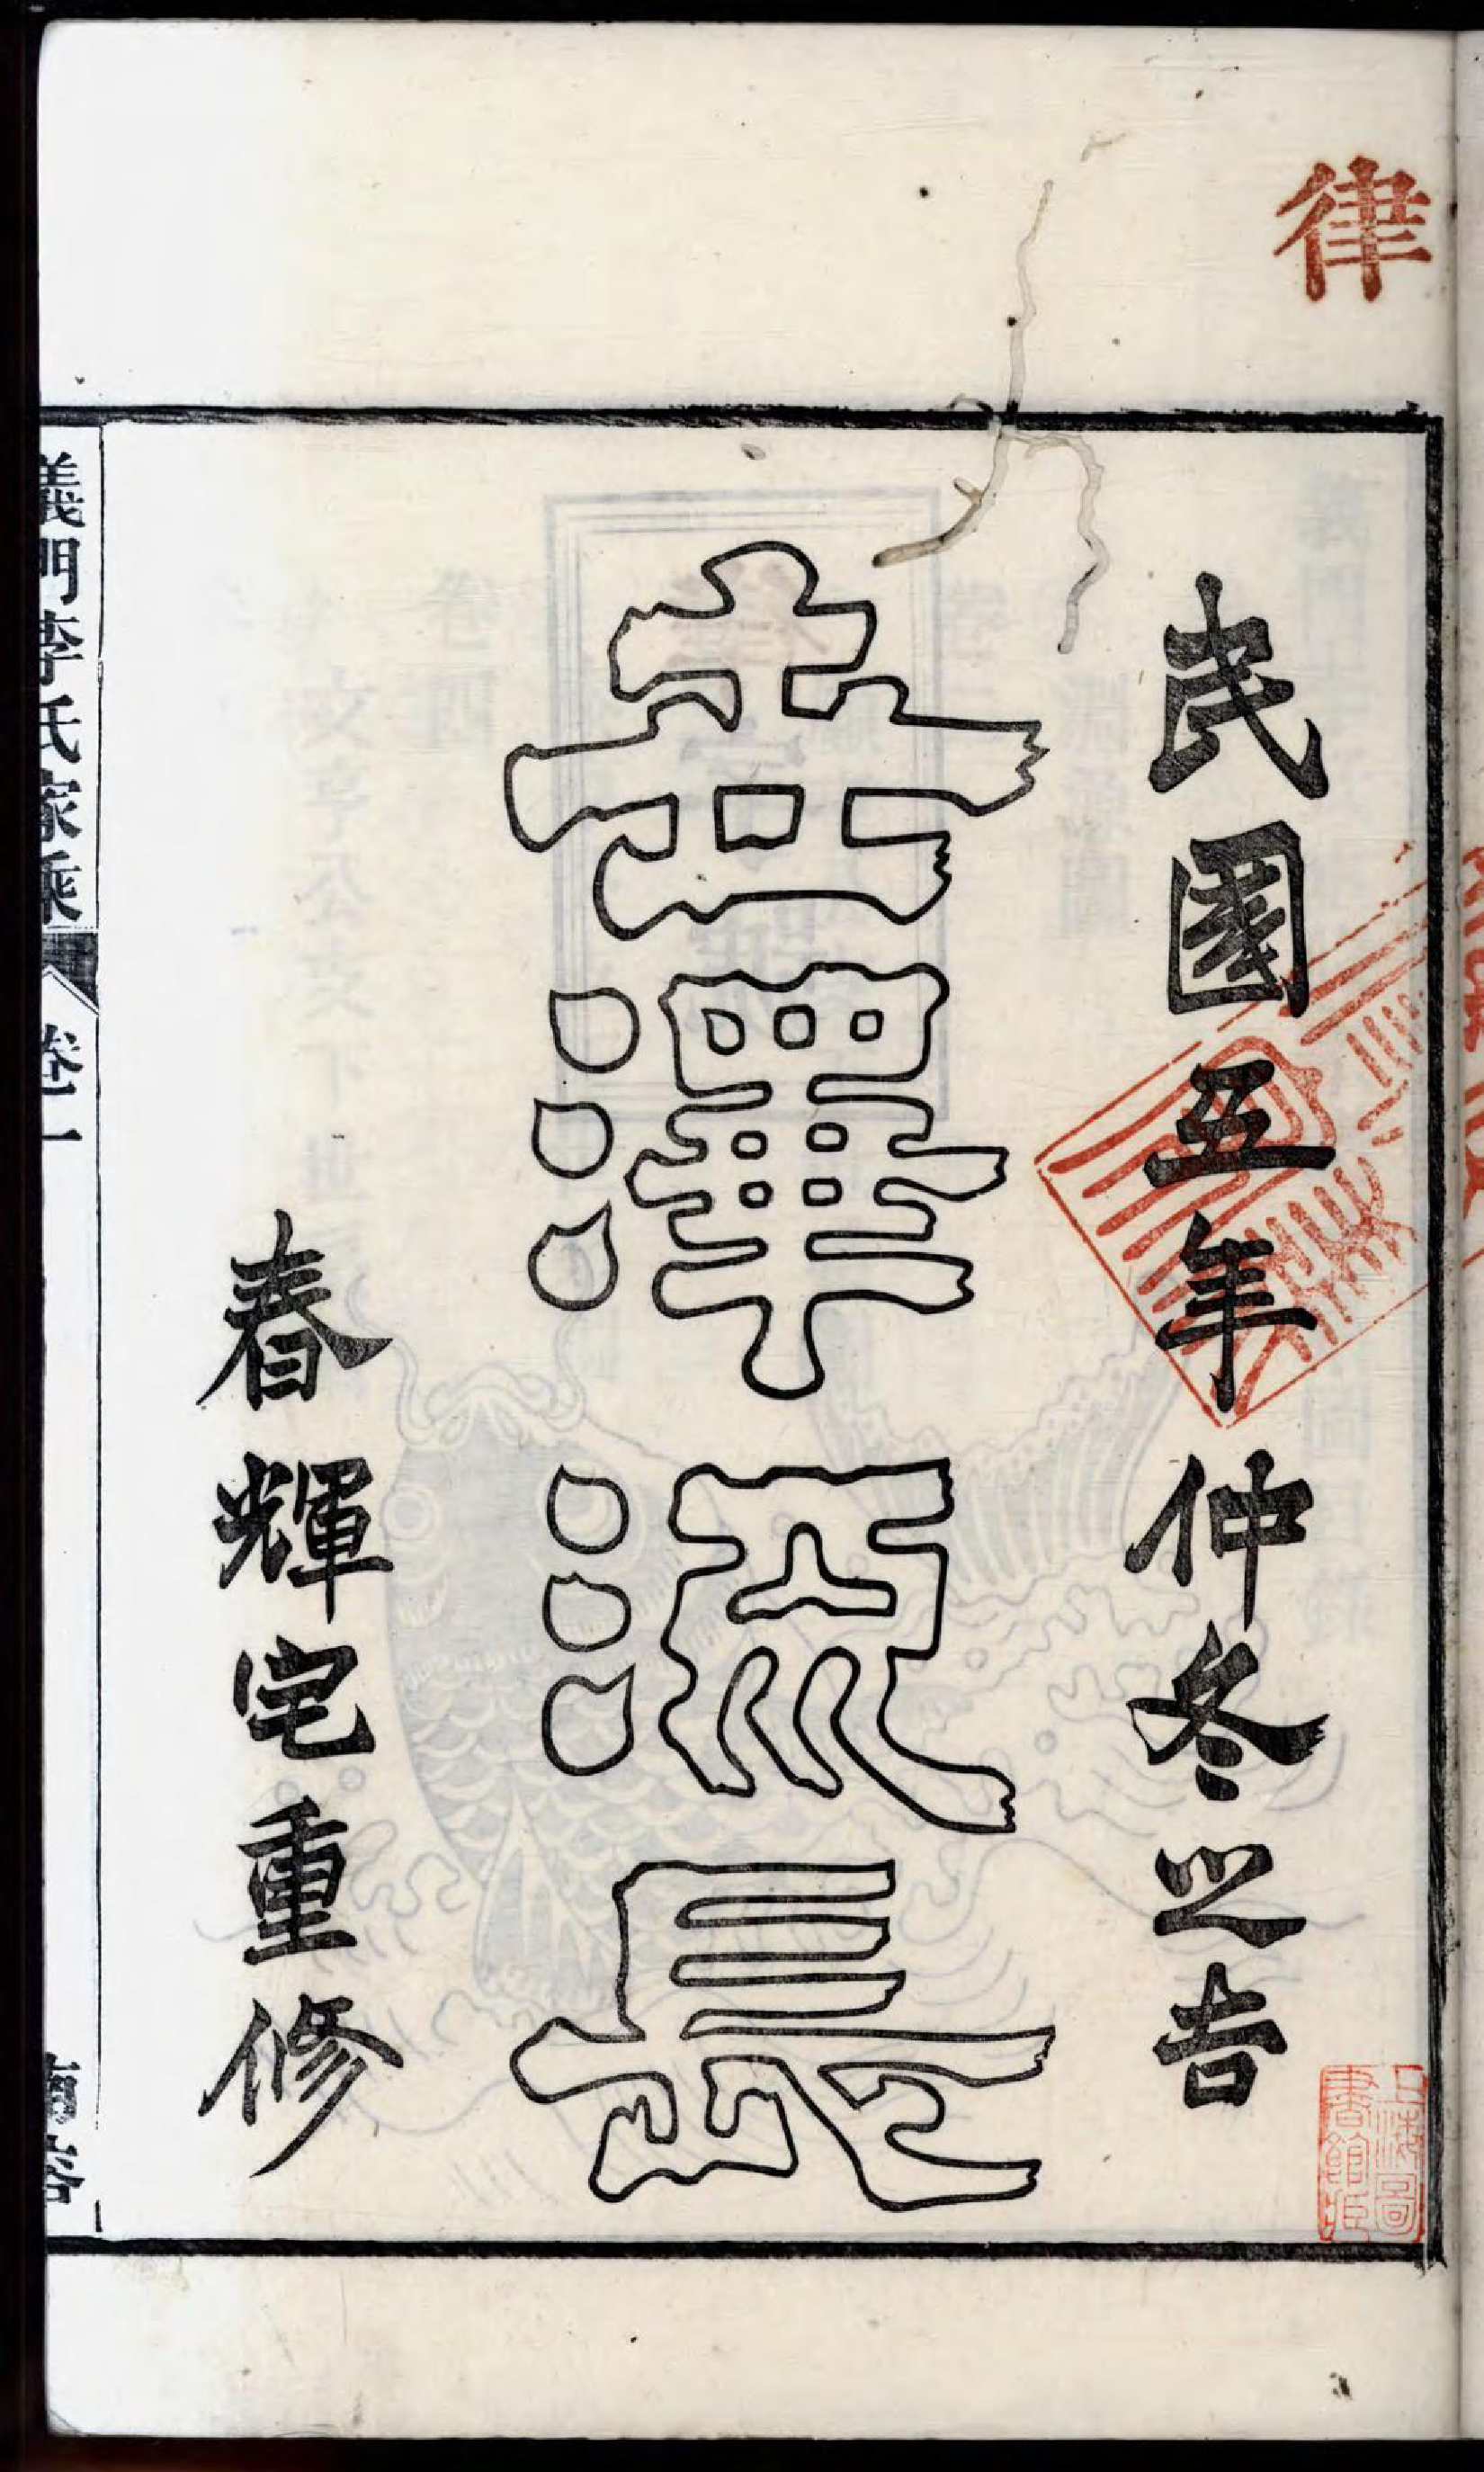 律
民國五年仲冬之吉
世澤流長
春輝宅重修
義門李氏家乘
卷一
上海圖書館藏